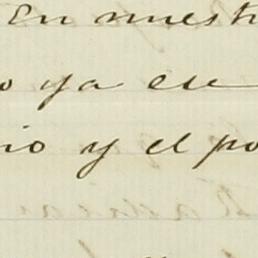 En nuest
o ya en
io y el po